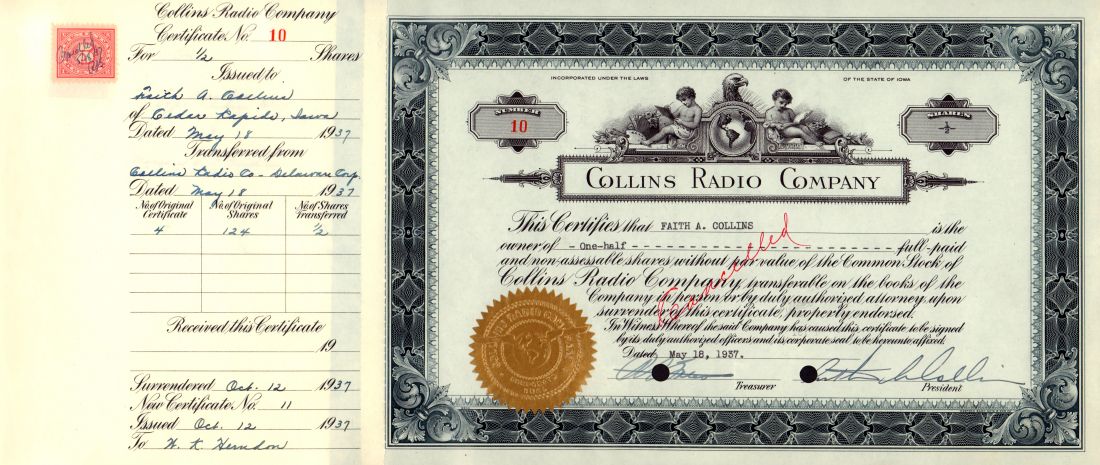 Collins Radio Company
Certificate No. 10
For 1/2 Shares
Issued to
Faith A. Collins
of Cedar Rapids, Iowa
Dated May 18 1937
Transferred from
Collins Radio Co - Delaware Corp.
Dated May 18 1937
No. of Original Certificate No. of Original Shares No. of Shares Transferred
4 124 1/2
Received this Certificate
19
Surrendered Oct. 12 1937
New Certificate No. 11
Issued Oct. 12 1937
To W. K. Herndon
INCORPORATED UNDER THE LAWS OF THE STATE OF IOWA
NUMBER
10
SHARES
-1/2-
COLLINS RADIO COMPANY
This Certifies that FAITH A. COLLINS is the
owner of - One-half - - - - - - - - - - - - - - - - - full-paid
and non-assessable shares without par value of the Common Stock of
Collins Radio Company, transferable on the books of the
Company in person or by duly authorized attorney upon
surrender of this certificate, properly endorsed.
In Witness Whereof the said Company has caused this certificate to be signed
by its duly authorized officers and its corporate seal to be hereunto affixed.
Dated May 18, 1937.
Treasurer
Arthur A. Collins
President
Cancelled